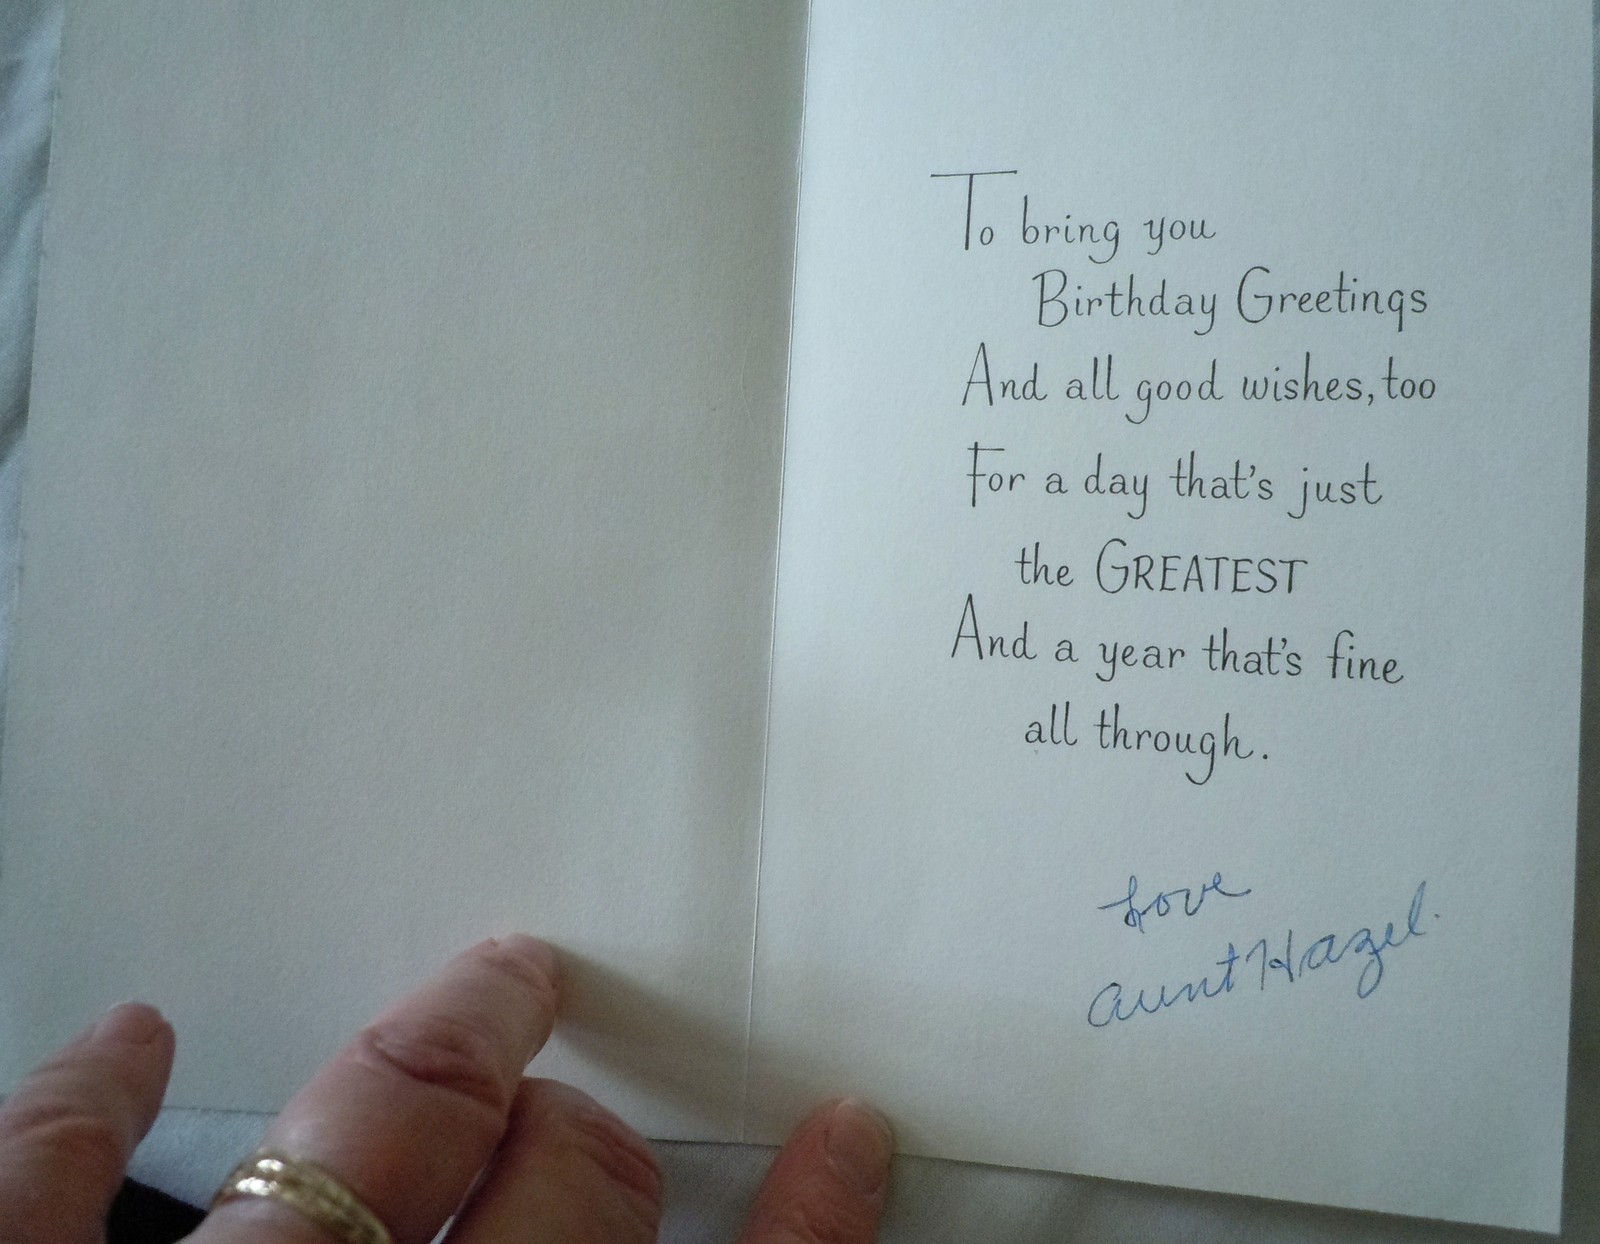 To bring you
Birthday Greetings
And all good wishes, too
For a day that's just
the GREATEST
And a year that's fine
all through.
Love
Aunt Hazel.